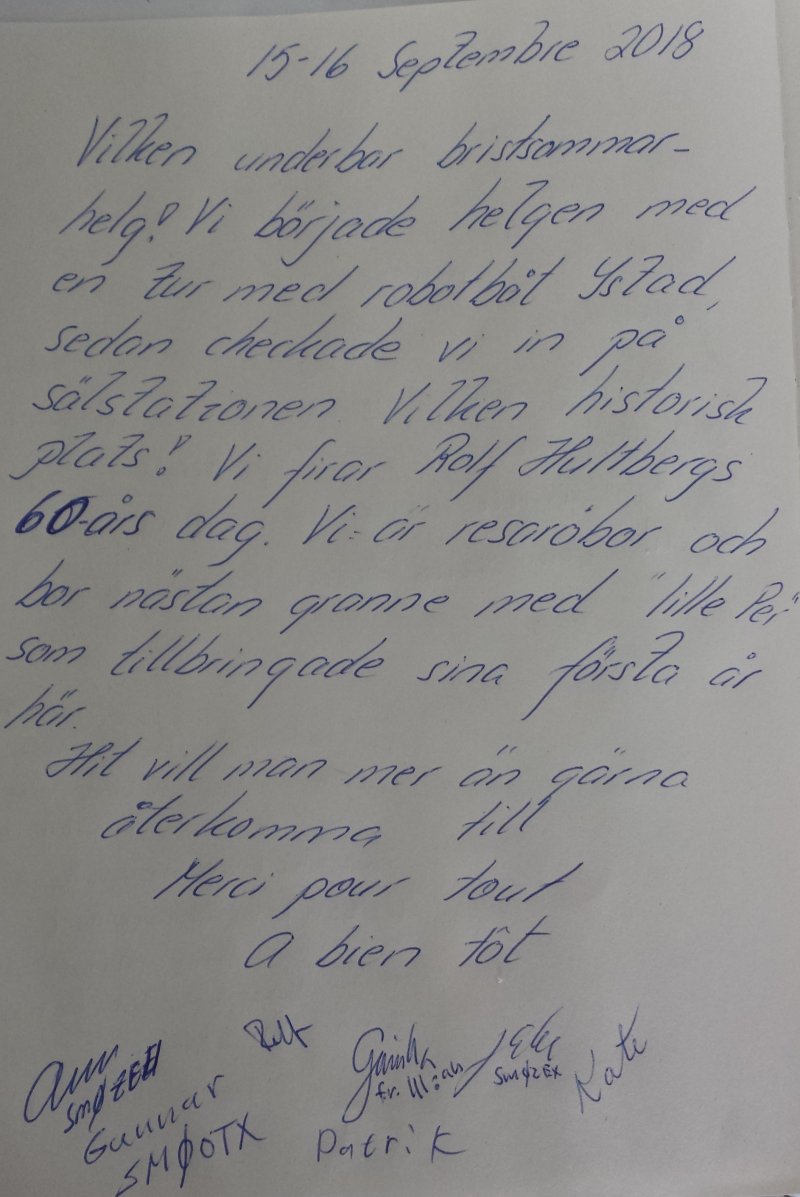 15-16 Septembre 2018
Vilken underbar bristsommar-
helg! Vi började helgen med
en tur med robotbåt Ystad,
sedan checkade vi in på
sälstationen. Vilken historisk
plats! Vi firar Rolf Hultbergs
60-års dag. Vi är resaröbor och
bor nästan granne med "lille Per"
som tillbringade sina första år
här.
Hit vill man mer än gärna
återkomma till
Merci pour tout
A bien tôt
SMØZEH
Gunnar
SMØOTX
Patrik
SMØZEX
Kate